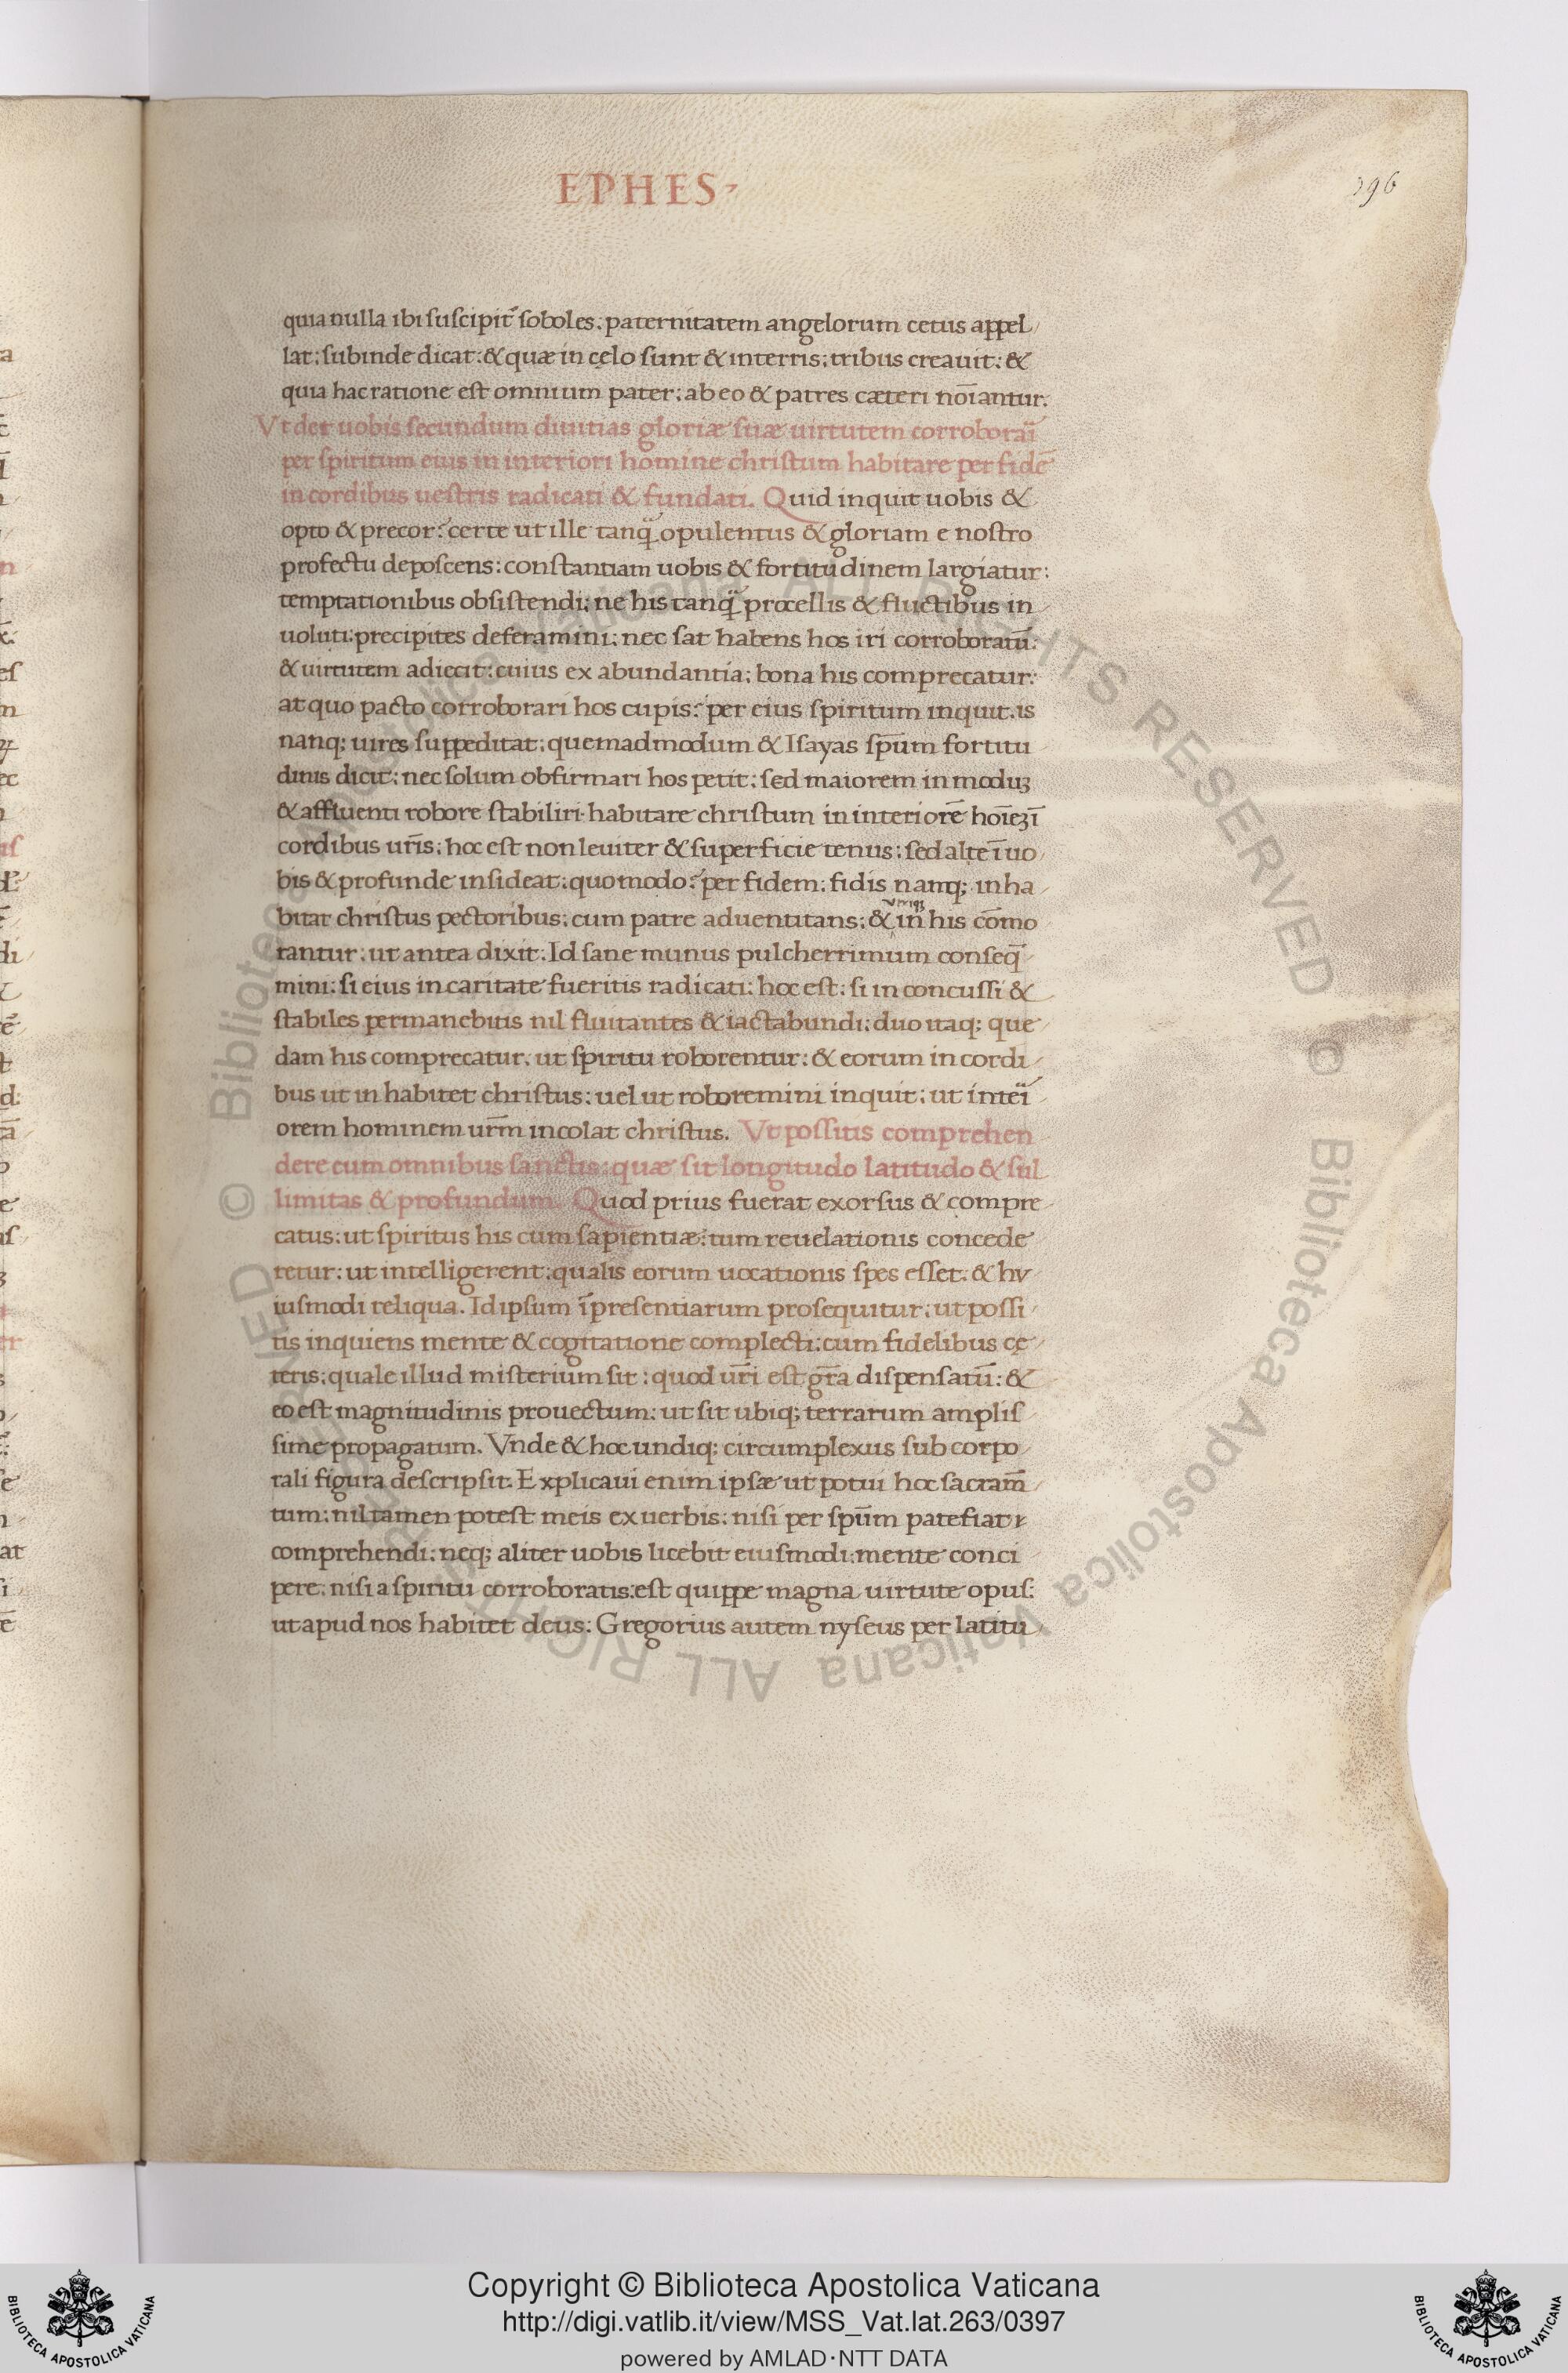 EPHES
196
quia nulla ibi suscipit̄ soboles: paternitatem angelorum cetus appel
lat: subinde dicat: & quæ in cęlo sunt & in terris: tribus creauit: &
quia hac ratione est omnium pater: ab eo & patres cæteri noīantur.
Vt det uobis secundum diuitias gloriæ suæ uirtutem corroborari
per spiritum eius in interiori homine christum habitare per fidē
in cordibus uestris radicati & fundati. Quid inquit uobis &
opto & precor? certe ut ille tanq̃ opulentus & gloriam e nostro
profectu deposcens: constantiam uobis & fortitudinem largiatur:
temptationibus obsistendi: ne his tanq̃ procellis & fluctibus in
uoluti: precipites deferamini: nec sat habens hos iri corroboratū:
& uirtutem adiecit: cuius ex abundantia: bona his comprecatur:
at quo pacto corroborari hos cupis? per eius spiritum inquit. is
nanq; uires suppeditat: quemadmodum & Isayas sp̄um fortitu
dinis dicit: nec solum obfirmari hos petit: sed maiorem in moduꝫ
& affluenti robore stabiliri habitare christum in interiorē hoīeꝫ ī
cordibus ur̄is: hoc est non leuiter & superficie tenus: sed alte ī uo
bis & profunde insideat: quomodo? per fidem: fidis nanq; inha
bitat christus pectoribus: cum patre aduentitans: & in his cōmo
rantur: ut antea dixit: Id sane munus pulcherrimum conseq̄
mini: si eius in caritate fueritis radicati: hoc est: si inconcussi &
stabiles permanebitis nil fluitantes & iactabundi: duo itaq; que
dam his comprecatur: ut spiritu roborentur: & eorum in cordi
bus ut inhabitet christus: uel ut roboremini inquit: ut interi
orem hominem ur̄m incolat christus. Vt possitis comprehen
dere cum omnibus sanctis: quæ sit longitudo latitudo & sul
limitas & profundum. Quod prius fuerat exorsus & compre
catus: ut spiritus his cum sapientiæ: tum reuelationis concede
retur: ut intelligerent: qualis eorum uocationis spes esset: & hu
iusmodi reliqua. Id ipsum īpresentiarum prosequitur: ut possi
tis inquiens mente & cogitatione complecti: cum fidelibus cę
teris: quale illud misterium sit: quod ur̄i est gr̄a dispensatū: &
eo est magnitudinis prouectum: ut sit ubiq; terrarum amplis
sime propagatum. Vnde & hoc undiq; circumplexus sub corpo
rali figura descripsit. Explicaui enim ipsæ ut potui hoc sacram̄
tum: nil tamen potest meis ex uerbis: nisi per spūm patefiat
comprehendi: neq; aliter uobis licebit eiusmodi: mente conci
pere: nisi a spiritu corroboratis: est quippe magna uirtute opus:
ut apud nos habitet deus: Gregorius autem nyseus per latitu
Copyright © Biblioteca Apostolica Vaticana
http://digi.vatlib.it/view/MSS_Vat.lat.263/0397
powered by AMLAD·NTT DATA